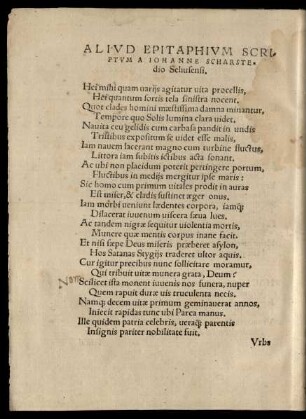 ALIVD EPITAPHIVM SCRI
PTVM A IOHANNE SCHARSTE-
dio Seliusensi.
Hei mihi quàm uarijs agitatur uita procellis,
Hei quantum sortis tela sinistra nocent.
Quot clades homini mœstissima damna minantur,
Tempore quo Solis lumina clara uidet.
Nauita ceu gelidis cum carbasa pandit in undis
Tristibus expositum se uidet esse malis,
Iam nauem lacerant magno cum turbine fluctus,
Littora iam subitis ictibus acta sonant.
Ac ubi non placidum poterit pertingere portum,
Fluctibus in medijs mergitur ipse maris:
Sic homo cum primum uitales prodit in auras
Est miser, & cladis sustinet æger onus.
Iam morbi ueniunt lædentes corpora, iamq́;
Dilacerat iuuenum uiscera sæua lues.
Ac tandem nigræ sequitur uiolentia mortis,
Munere quæ mentis corpus inane facit.
Et nisi sæpe Deus miseris præberet asylon,
Hos Satanas Stygijs traderet ultor aquis.
Cur igitur precibus nunc sollicitare moramur,
Qui tribuit uitæ munera grata, Deum?
Scilicet ista monent iuuenis nos funera, nuper
Quem rapuit duræ uis truculenta necis.
Namq́; decem uitæ primum geminauerat annos,
Iniecit rapidas tunc ubi Parca manus.
Ille quidem patria celebris, ueraq́; parentis
Insignis pariter nobilitate fuit.
Vrbs